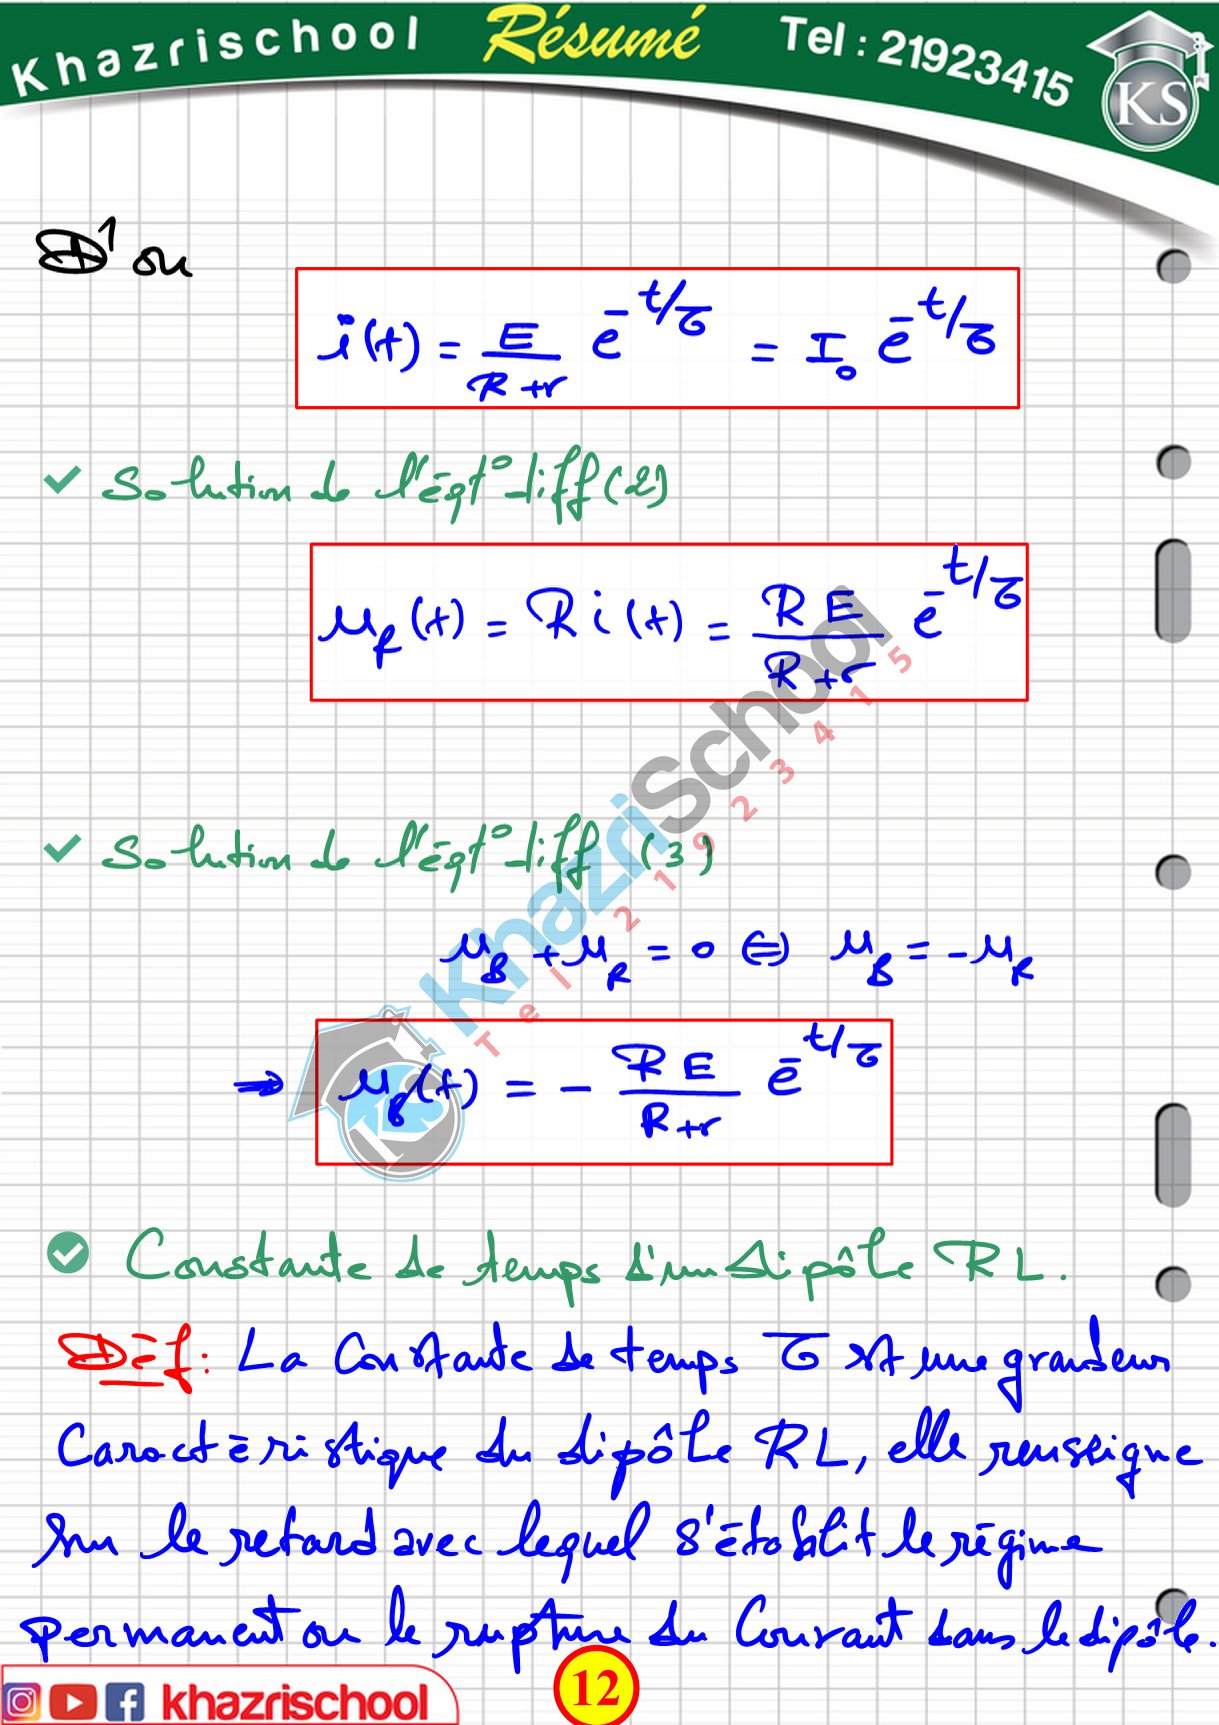 Khazrischool Résumé Tel : 21923415
KS
D'où
i(t) = E/(R+r) e^(-t/τ) = I₀ e^(-t/τ)
Solution de l'éqt° diff (2)
u_R(t) = R i(t) = R E/(R+r) e^(-t/τ)
Solution de l'éqt° diff (3)
u_B + u_R = 0 ⇔ u_B = -u_R
⇒ u_B(t) = - R E/(R+r) e^(-t/τ)
KhazriSchool
Tel 21923415
KS
Constante de temps d'un dipôle RL.
Déf: La Constante de temps τ est une grandeur
Caractéristique du dipôle RL, elle renseigne
sur le retard avec lequel s'établit le régime
permanent ou le rupture du Courant dans le dipôle.
khazrischool
12